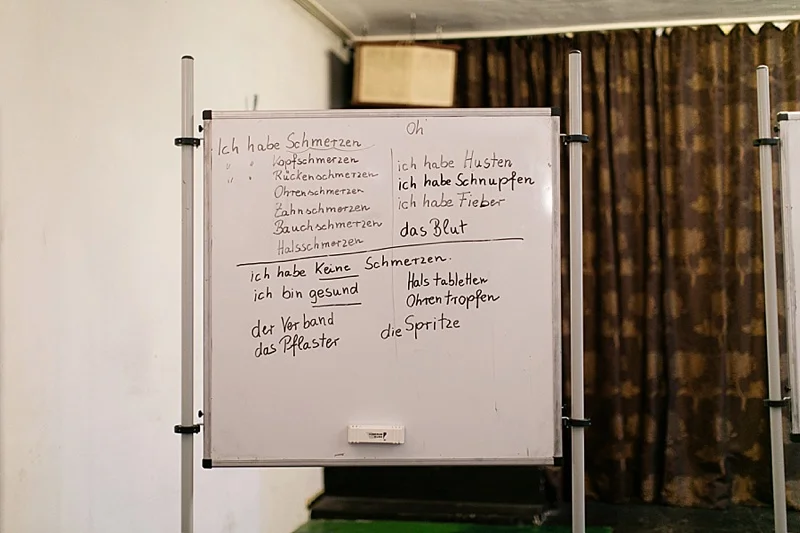 Oh
Ich habe Schmerzen
" " Kopfschmerzen
" " Rückenschmerzen
Ohrenschmerzen
Zahnschmerzen
Bauchschmerzen
Halsschmerzen
ich habe Husten
ich habe Schnupfen
ich habe Fieber
das Blut
ich habe Keine Schmerzen.
ich bin gesund
Halstabletten
Ohrentropfen
der Verband
das Pflaster
die Spritze